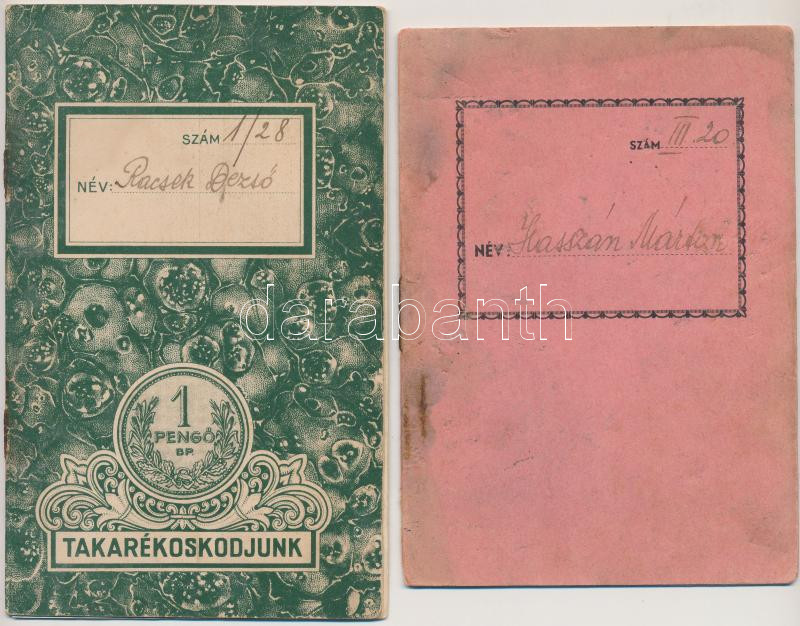 SZÁM 1/28
NÉV: Racsek Dezső
1
PENGŐ
BP.
TAKARÉKOSKODJUNK
SZÁM III.20
NÉV: Hasszán Márton
darabanth